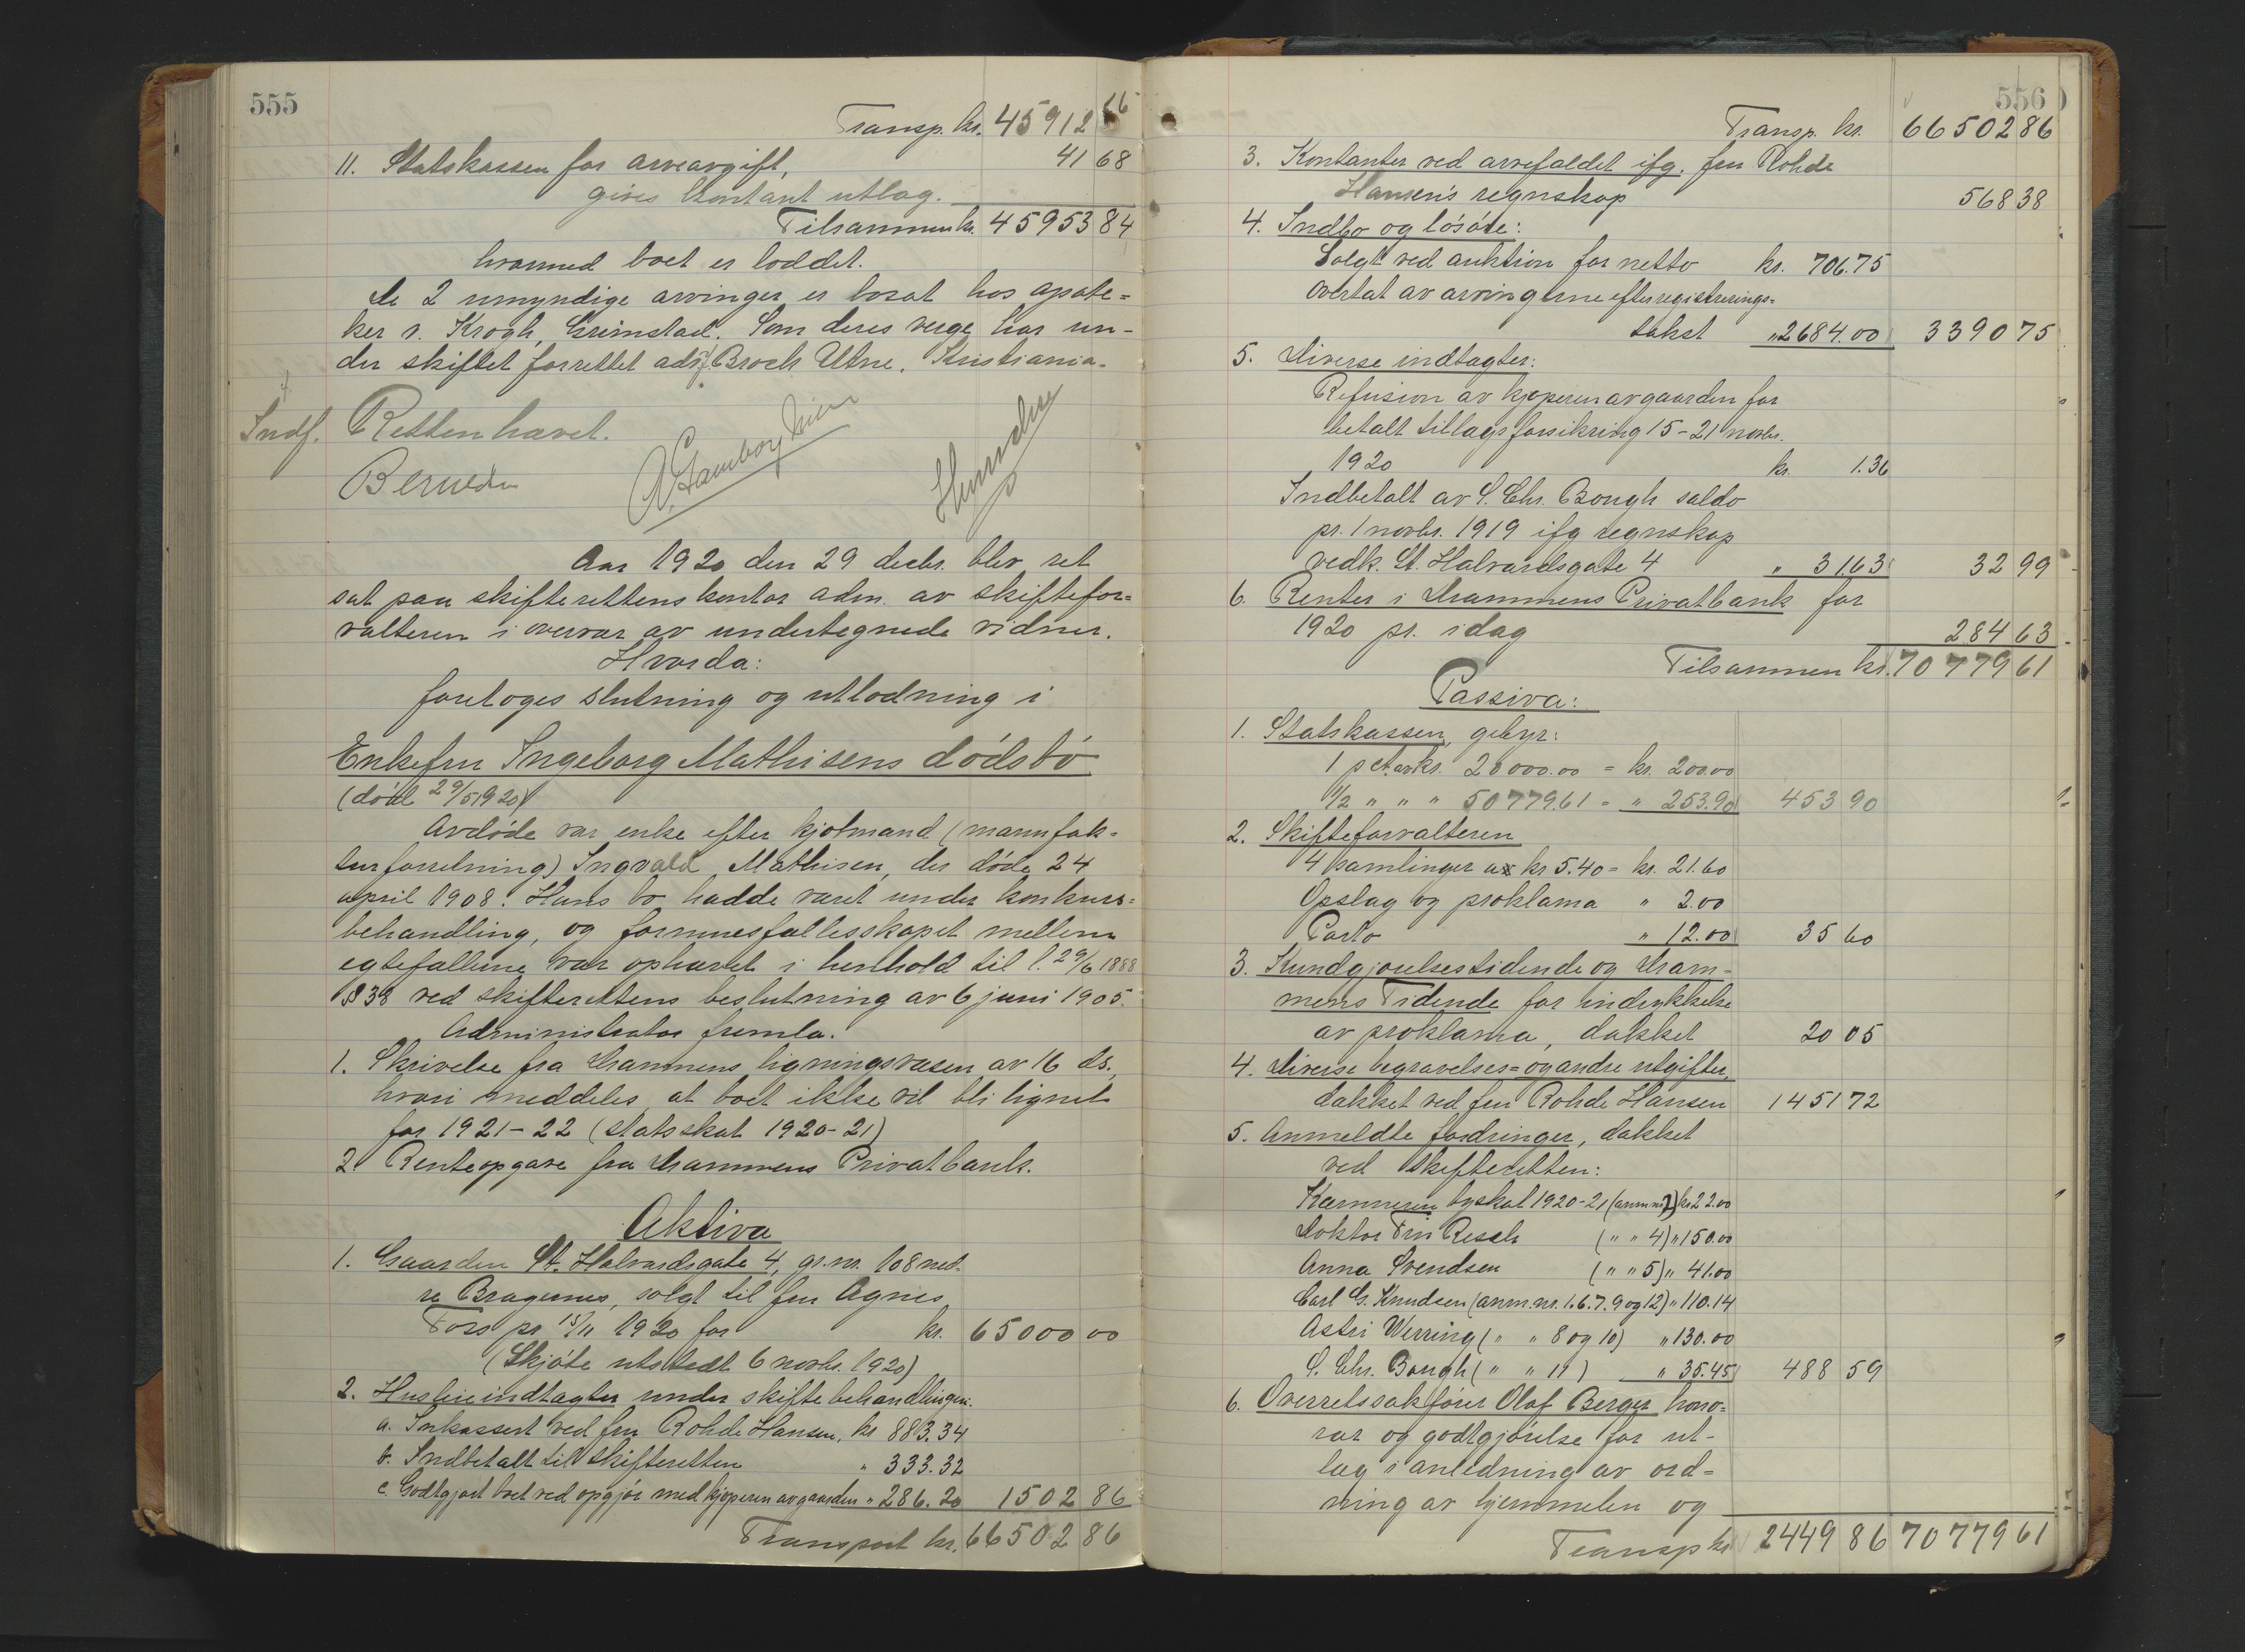 555
Transp. kr. 45912 16
11. Statskassen for arveavgift, 41 68
gives kontant utlæg.
Tilsammen kr. 45953 84
hvormed boet er loddet.
De 2 umyndige arvinger er bosat hos apote=
ker v. Krogh, Grimstad. Som deres verge har un-
der skiftet forrettet adv. Broch Utne, Kristiania.
Indf. Retten hævet.
Aar 1920 den 29 decbr. blev ret
sat paa skifterettens kontor adm. av skiftefor=
valteren i overvær av undertegnede vidner.
Hvorda:
foretoges slutning og utlodning i
Enkefru Ingeborg Mathisens dødsbo
(død 29/5 1920)
Avdøde var enke efter kjøbmand (manufak=
turforretning) Ingvald Mathisen, der døde 24
april 1908. Hans bo hadde været under konkurs=
behandling, og formuesfællesskapet mellem
egtefællene var ophævet i henhold til l. 29/6 1888
§ 38 ved skifterettens beslutning av 6 juni 1905.
Administrator fremla:
1. Skrivelse fra Drammens ligningsvæsen av 16 ds.,
hvori meddeles, at boet ikke vil bli lignet
for 1921-22 (statsskat 1920-21)
2. Renteopgave fra Drammens Privatbank.
Aktiva
1. Gaarden St. Halvardsgate 4, gr. nr. 108 ned-
re Bragernes, solgt til fru Agnes
Foss pr 15/11 1920 for kr. 65000 00
(Skjøte utstedt 6 novbr. 1920)
2. Husleieindtægter under skiftebehandlingen.
a. Inkassert ved fru Rohde Hansen, kr 883.34
b. Indbetalt til skifteretten " 333.32
c. Godtgjort boet ved opgjør med kjøperen av gaarden " 286.20 1502 86
Transport kr. 66502 86
556
Transp. kr. 66502 86
3. Kontanter ved arvefaldet ifg. fru Rohde
Hansen's regnskap 568 38
4. Indbo og løsøre:
Solgt ved auktion for netto kr. 706.75
Overtat av arvingerne efter registrerings=
takst " 2684.00 3390 75
5. Diverse indtægter:
Refusion av kjøperen av gaarden for
betalt tillægsforsikring 15-21 novbr.
1920 kr. 1.36
Indbetalt av S. Chr. Bough saldo
pr. 1 novbr. 1919 ifg regnskap
vedk. St. Halvardsgate 4 " 31.63 32 99
6. Renter i Drammens Privatbank for
1920 pr. idag 284 63
Tilsammen kr. 70779 61
Passiva:
1. Statskassen, gebyr:
1 pct. av kr. 20000.00 = kr. 200.00
1/2 " " " 50779.61 = " 253.90 453 90
2. Skifteforvalteren
4 samlinger a kr 5.40 = kr. 21.60
Opslag og proklama " 2.00
Porto " 12.00 35 60
3. Kundgjørelsestidende og Dram=
mens Tidende for indrykkelse
av proklama, dækket 20 05
4. Diverse begravelses= og andre utgifter,
dækket ved fru Rohde Hansen 1451 72
5. Anmeldte fordringer, dækket
ved skifteretten:
Kæmneren byskat 1920-21 (anm nr 2) kr 22.00
Doktor Resch ( " " 4) " 150.00
Anna Svendsen ( " " 5) " 41.00
Carl G. Knudsen (anm. nr. 1. 6. 7. 9 og 12) " 110.14
Astri Werring ( " " 8 og 10) " 130.00
S. Chr. Bough ( " " 11 ) " 35.45 488 59
6. Overretssakfører Olaf Berger hono=
rar og godtgjørelse for ut-
læg i anledning av ord=
ning av hjemmelen og
Transp kr 2449 86 70779 61